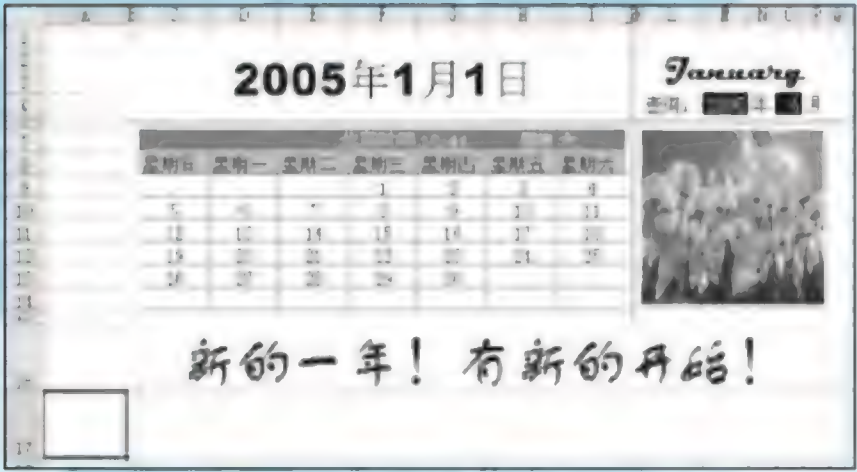 2005年1月1日
January
星期日 星期一 星期二 星期三 星期四 星期五 星期六
1 2 3 4
5 6 7 8 9 10 11
12 13 14 15 16 17 18
19 20 21 22 23 24 25
26 27 28 29 30
新的一年！有新的开始！